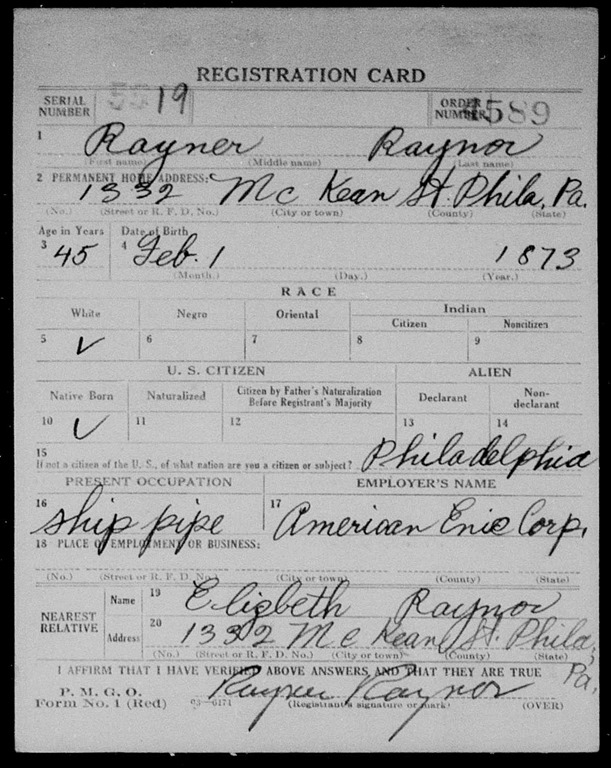 REGISTRATION CARD
SERIAL NUMBER 5519 ORDER NUMBER 4589
1 Rayner Raynor
(First name) (Middle name) (Last name)
2 PERMANENT HOME ADDRESS:
1332 Mc Kean St. Phila, Pa.
(No.) (Street or R. F. D. No.) (City or town) (County) (State)
Age in Years Date of Birth
3 45 4 Feb. 1 1873
(Month.) (Day.) (Year.)
RACE
White Negro Oriental Indian
Citizen Noncitizen
5 ✓ 6 7 8 9
U. S. CITIZEN ALIEN
Native Born Naturalized Citizen by Father's Naturalization Before Registrant's Majority Declarant Non-declarant
10 ✓ 11 12 13 14
15
If not a citizen of the U. S., of what nation are you a citizen or subject? Philadelphia
PRESENT OCCUPATION EMPLOYER'S NAME
16 ship pipe 17 American Corp.
18 PLACE OF EMPLOYMENT OR BUSINESS:
(No.) (Street or R. F. D. No.) (City or town) (County) (State)
NEAREST RELATIVE Name 19 Elizbeth Raynor
Address 20 1332 Mc Kean St. Phila, Pa.
(No.) (Street or R. F. D. No.) (City or town) (County) (State)
I AFFIRM THAT I HAVE VERIFIED ABOVE ANSWERS AND THAT THEY ARE TRUE
P. M. G. O.
Form No. 1 (Red) 03—6171 Rayner Raynor
(Registrant's signature or mark) (OVER)